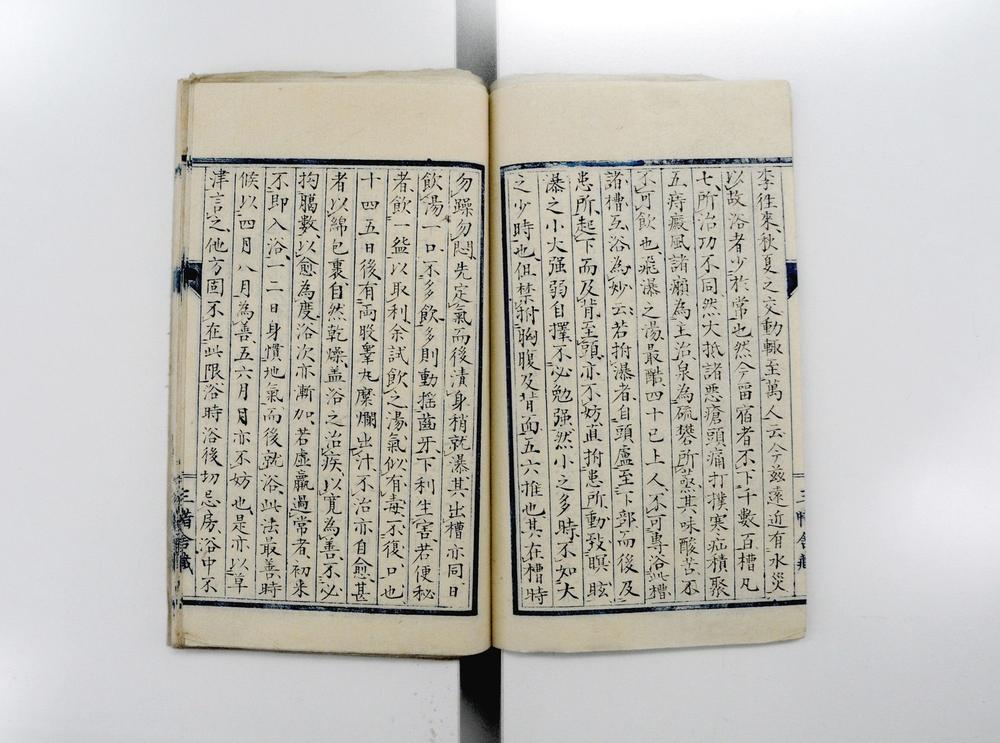 李往來秋夏之交動輒至萬人云今茲遠近有水災
以故浴者少於常也然今畱宿者不下千數百槽凡
七所治功不同然大抵諸惡瘡頭痛打撲寒疝積聚
五痔癜風諸癩為主治泉為硫礬所蒸其味酸苦不
可飲也飛瀑之湯最酷四十已上人不可專浴此槽
諸槽互浴為妙云若拊瀑者自頭盧至下部而後及
患所起下而及背至頭亦不妨直拊患所動致瞑眩
瀑之小大强弱自擇不必勉强然小之多時不如大
之少時也但禁拊胸腹及背面五六推也其在槽時
勿躁勿悶先定氣而後漬身稍就瀑其出槽亦同日
飲湯一口不多飲多則動搖齒牙下利生害若便秘
者飲一盌以取利余試飲之湯氣似有毒不復口也
十四五日後有両股睾丸糜爛出汁不治亦自愈甚
者以綿包裹自然乾燥盖浴之治疾以寬為善不必
拘臈數以愈為度浴次亦漸加若虛羸過常者初来
不即入浴一二日身慣地氣而後就浴此法最善時
候以四月八月為善五六月月亦不妨也是亦以草
津言之他方固不在此限浴時浴後切忌房浴中不
舎藏
舎藏